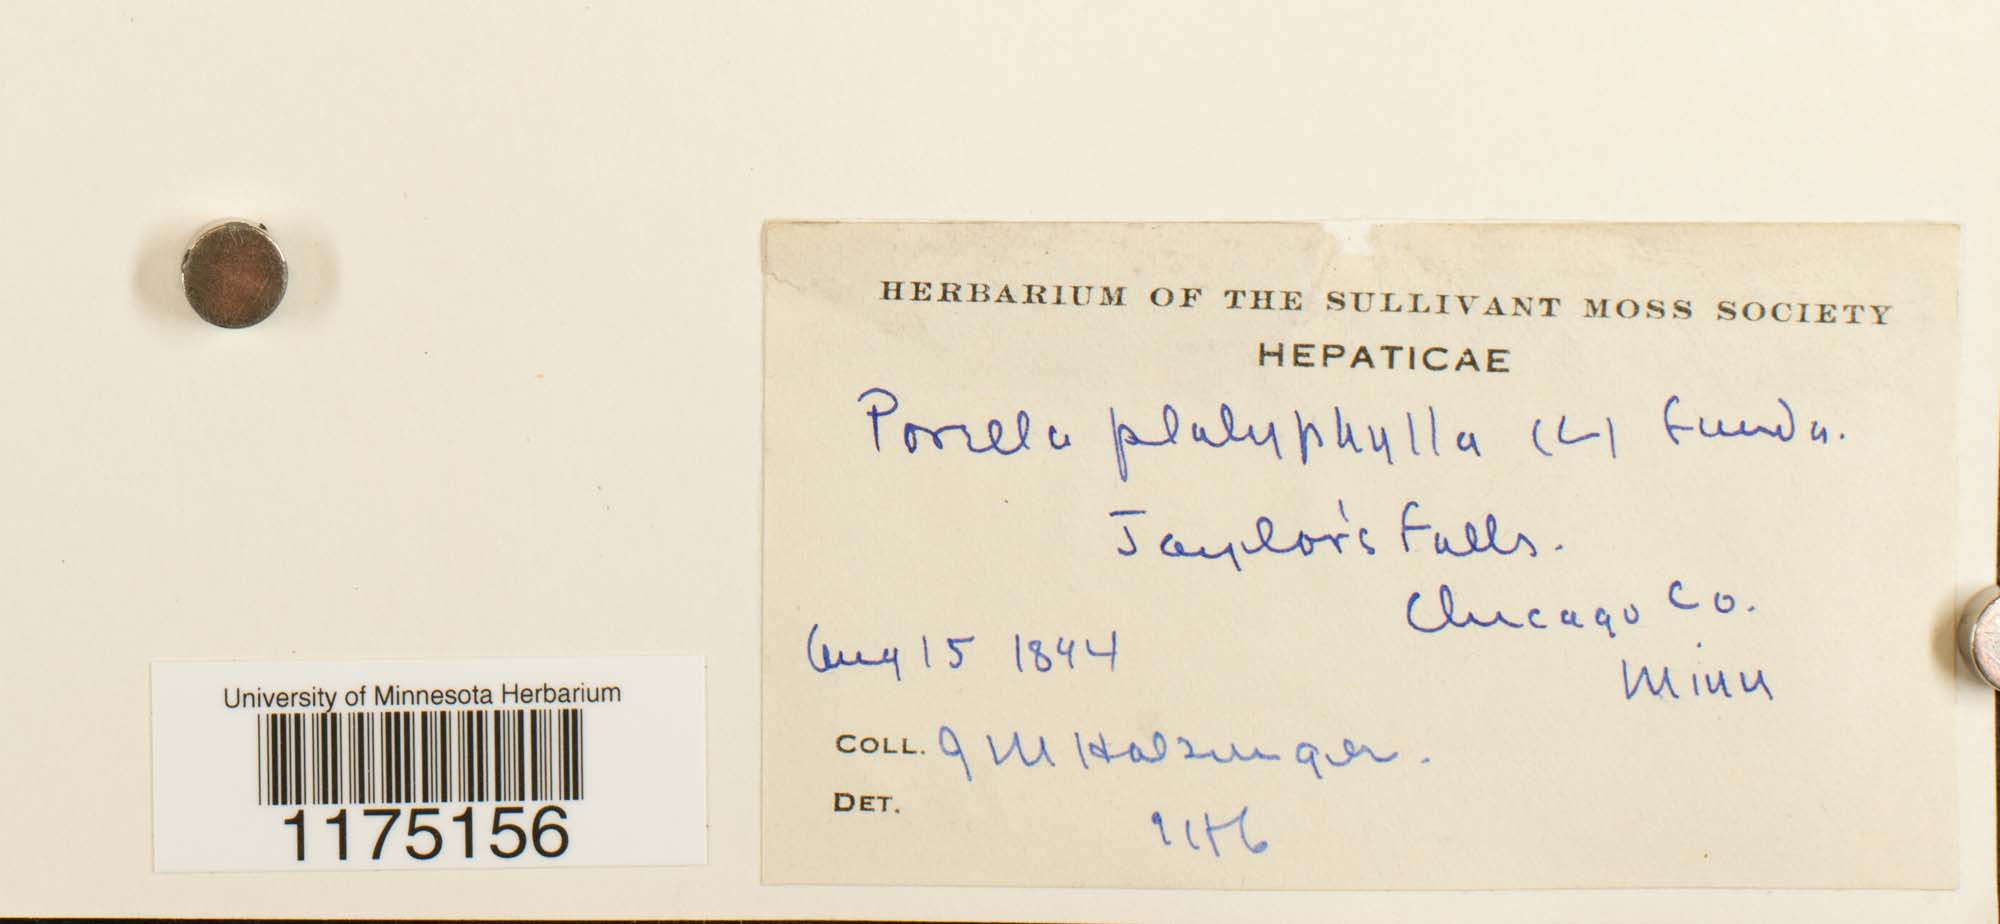 HERBARIUM OF THE SULLIVANT MOSS SOCIETY
HEPATICAE
Porella platyphylla (L)
Taylor's Falls.
Chicago Co.
Minn
Aug 15 1894
COLL. J M Holzinger.
DET.
University of Minnesota Herbarium
1175156